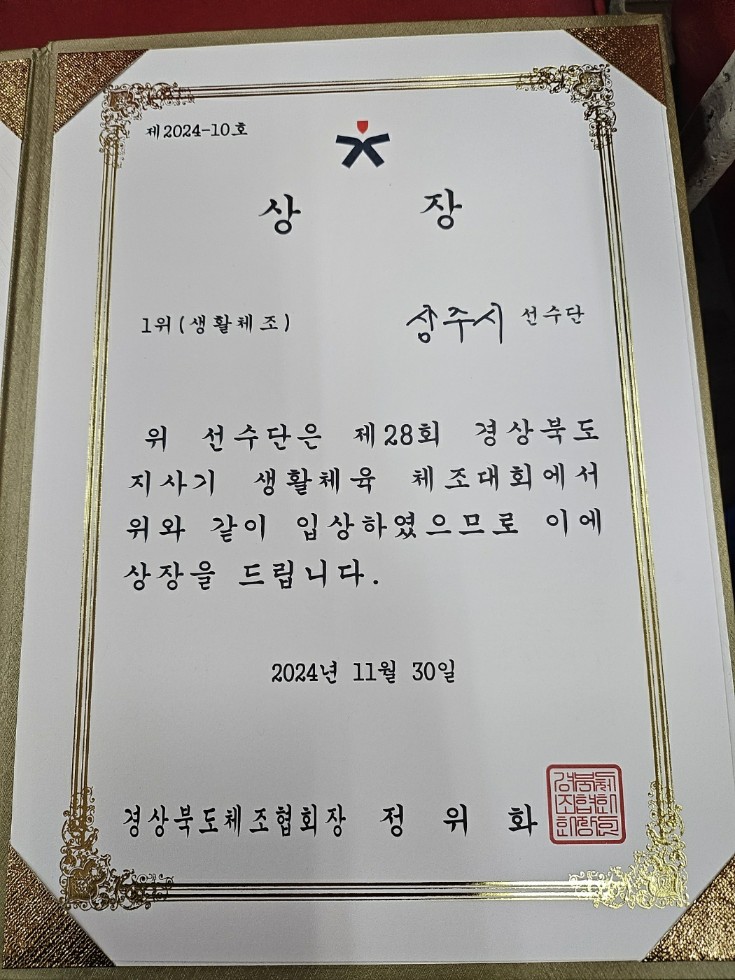 제2024-10호
상 장
1위(생활체조) 상주시 선수단
위 선수단은 제28회 경상북도
지사기 생활체육 체조대회에서
위와 같이 입상하였으므로 이에
상장을 드립니다.
2024년 11월 30일
경상북도체조협회장 정 위 화